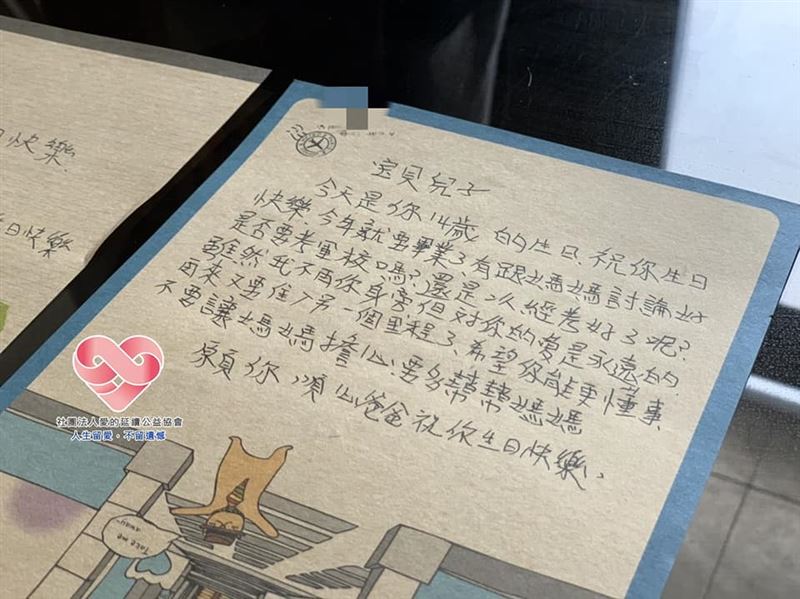 日快樂
日快樂
宝貝兒子
今天是你14歲的生日,祝你生日
快樂.今年就要畢業了有跟媽媽討論好
是否要考軍校嗎?還是以經考好了呢?
雖然我不再你身旁但對你的愛是永遠的
再來又要進入另一個里程了,希望你能更懂事
不要讓媽媽擔心,要多幫幫媽媽
願你順心爸爸祝你生日快樂,
社團法人愛的延續公益協會
人生留愛,不留遺憾
Take me
away~